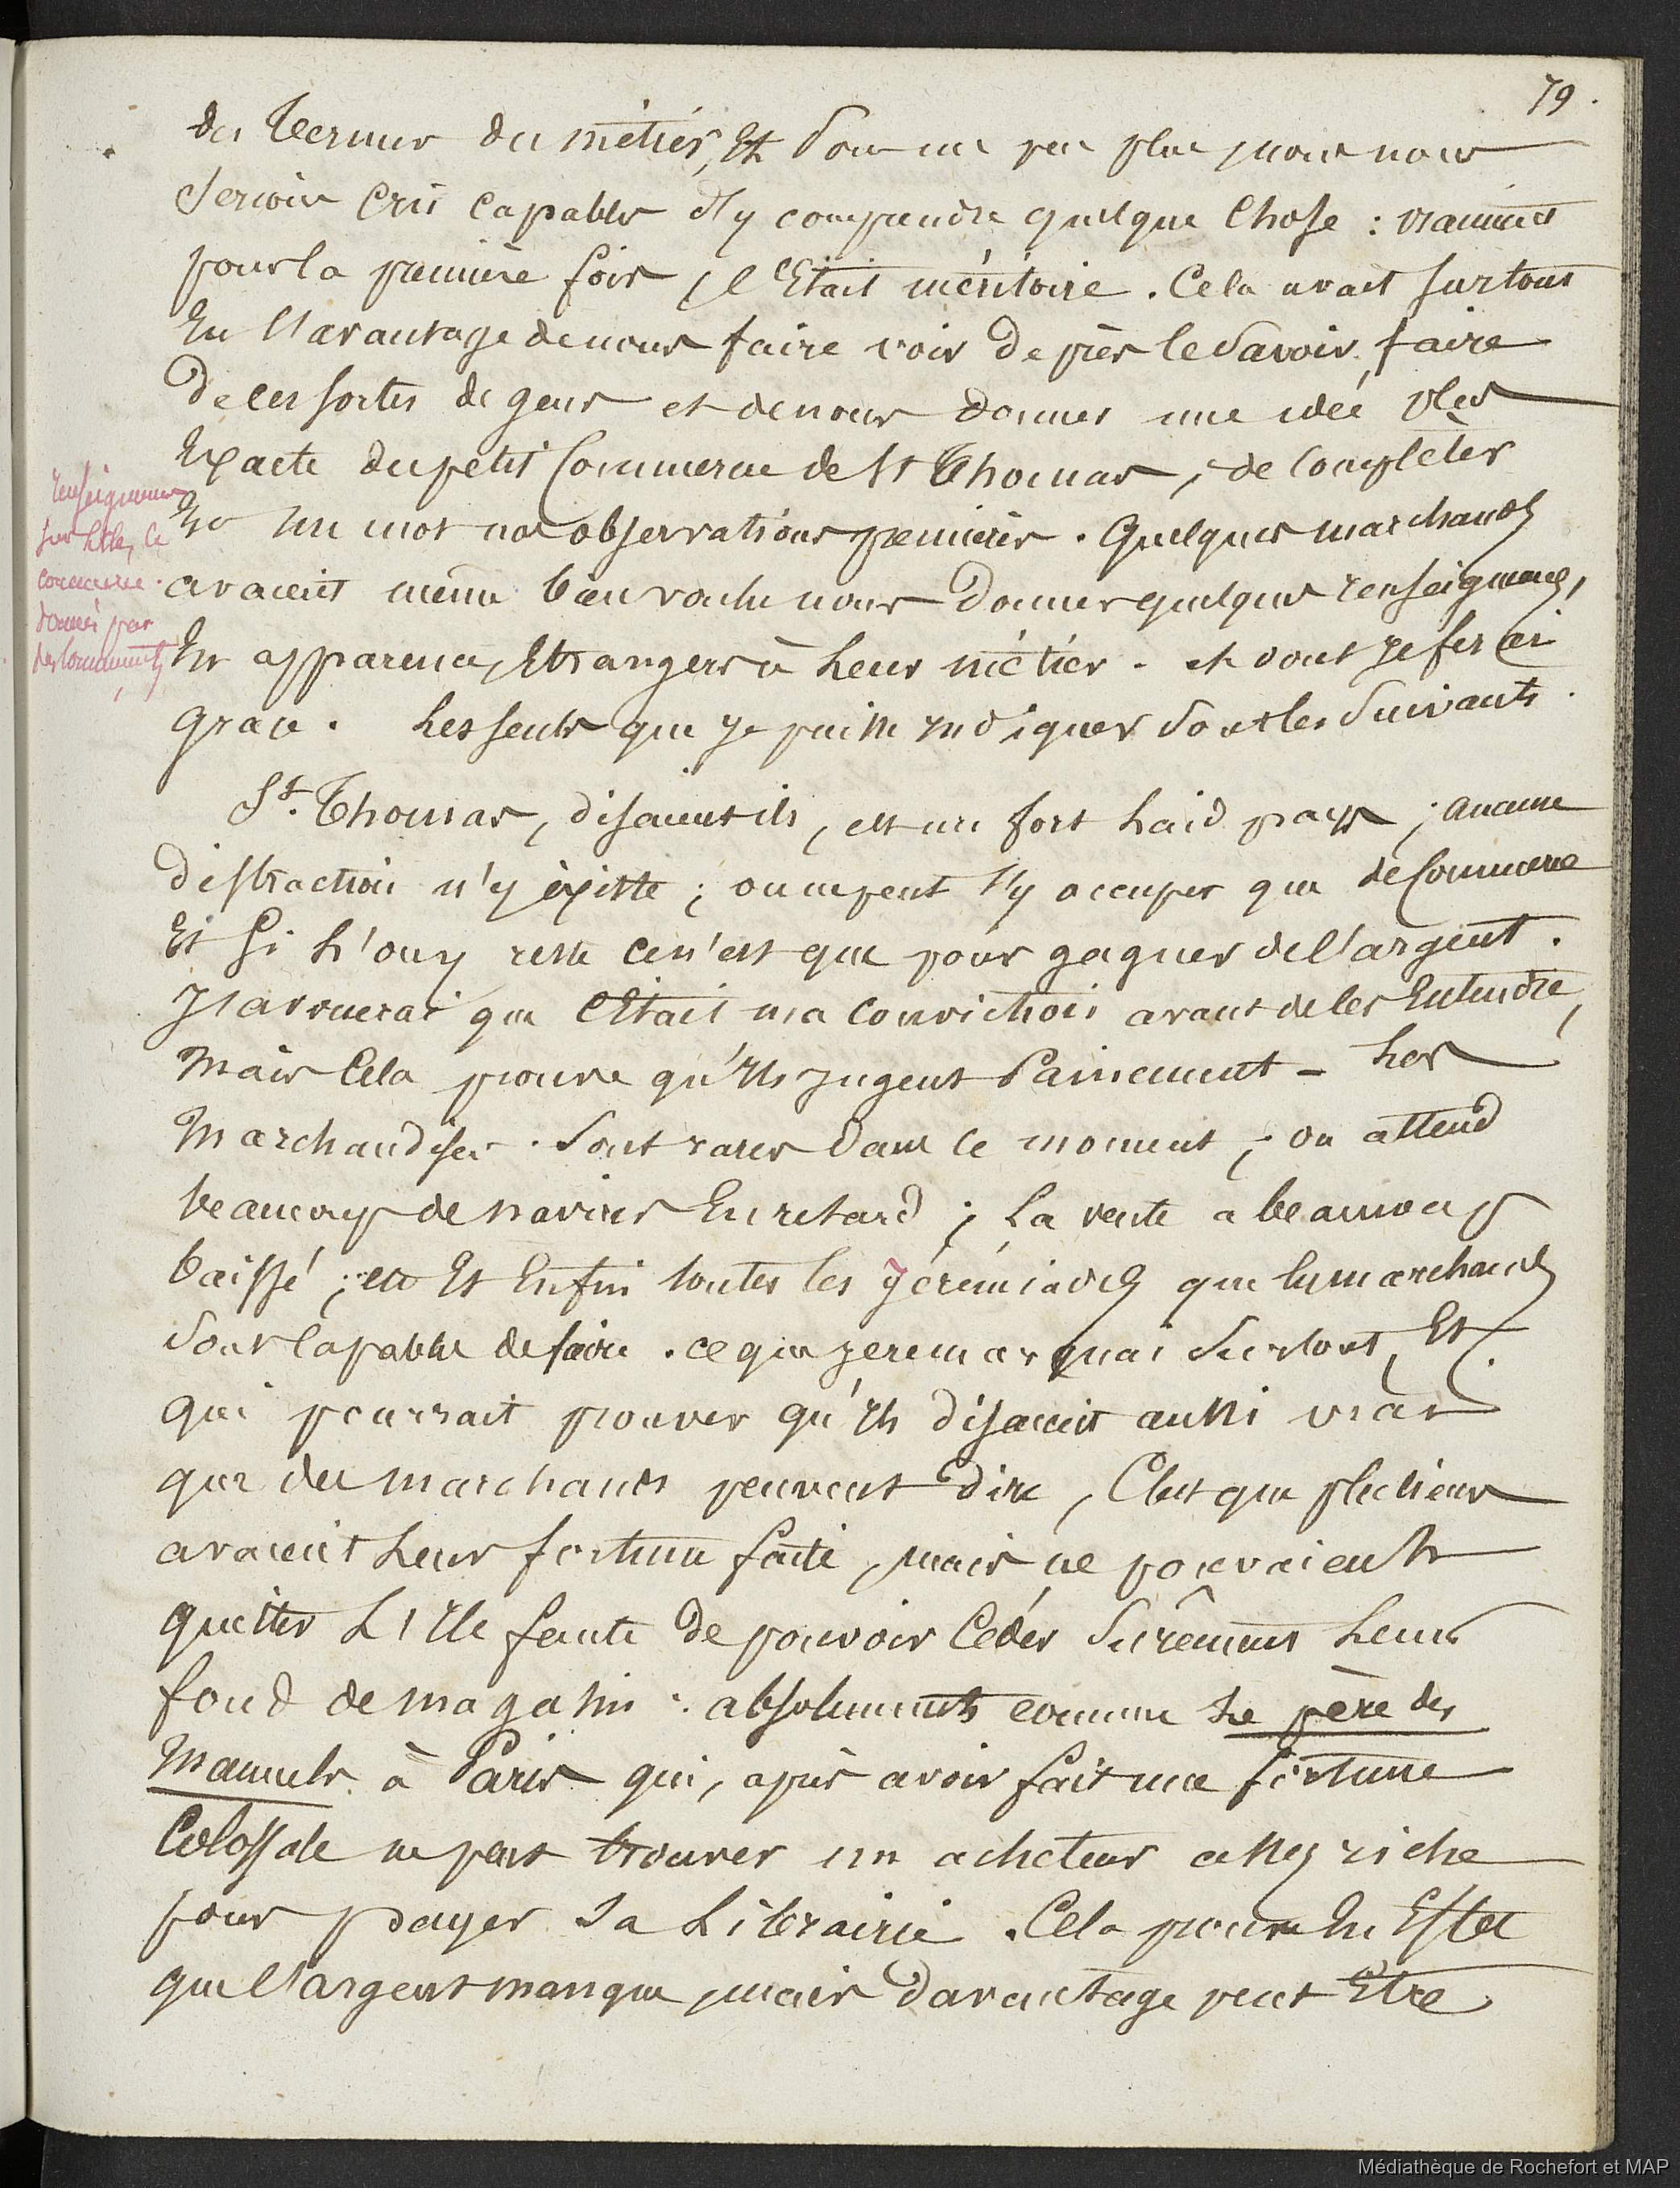 79.
des termes du métier, Et pour un peu plus, nous nous
serions Crus Capables d'y comprendre quelque Chose : vraiment
pour la première fois, c'Etait méritoire. Cela avait surtout
Eu l'avantage de nous faire voir de près le savoir faire
De ces sortes de gens et de nous donner une idée plus
Exacte du petit Commerce de St Thomas, de Completer
En un mot nos observations premières. Quelques marchands
avaient même bien voulu nous donner quelques renseignements,
En apparence, Etrangers à leur métier - et dont je ferai
grace. Les seuls que je puisse indiquer sont les suivants.
renseignements
sur l'ile, le
commerce.
donnés par
des commerçants
St. Thomas, disaient ils, est un fort laid pays ; aucune
distraction n'y éxiste ; on ne peut s'y occuper que de Commerce
Et si l'on y reste ce n'est que pour gagner de l'argent.
J'avouerai que c'Etait ma conviction avant de les Entendre,
Mais Cela prouve qu'ils jugent sainement - Les
Marchandises. sont rares dans ce moment ; on attend
beaucoup de navires En retard ; La vente a beaucoup
baissé ; etc Et Enfin toutes les Jérémiades que les marchands
sont Capables de faire. ce que je remarquai surtout, Et
qui pourrait prouver qu'ils disaient aussi vrai
que des marchands peuvent dire, C'est que plusieurs
avaient leur fortune faite, mais ne pouvaient
quitter L'Ile faute de pouvoir Céder Surêment leur
fond de magasin : absolument comme Le père des
Manuels à Paris qui, après avoir fait une fortune
Colossale ne peut trouver un acheteur assez riche
pour payer sa Librairie. Cela prouve En Effet
que l'argent manque, mais davantage peut Etre
Médiathèque de Rochefort et MAP